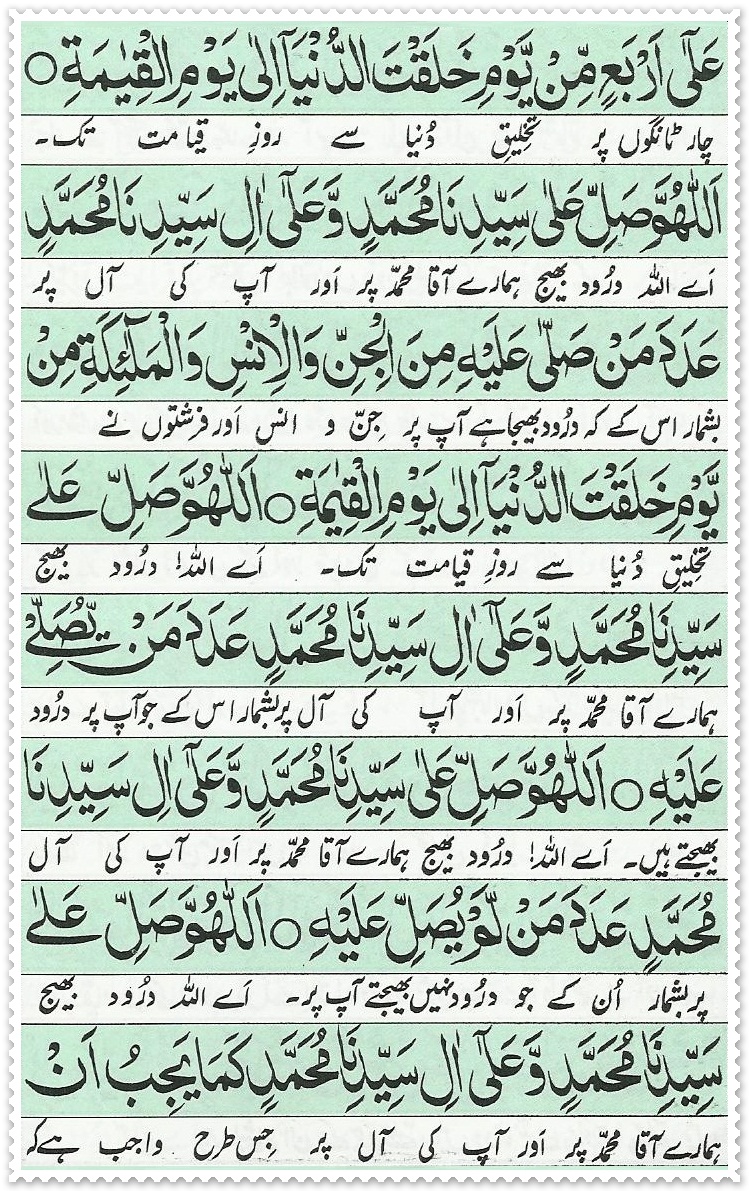 عَلٰٓى اَرْبَعٍ مِّنْ يَّوْمِ خَلَقْتَ الدُّنْيَآ اِلٰى يَوْمِ الْقِيٰمَةِ ○
چار ٹانگوں پر تخلیقِ دُنیا سے روزِ قیامت تک۔
اَللّٰهُمَّ صَلِّ عَلٰى سَيِّدِنَا مُحَمَّدٍ وَّعَلٰٓى اٰلِ سَيِّدِنَا مُحَمَّدٍ
اَے اللہ درُود بھیج ہمارے آقا محمدؐ پر اَور آپ کی آل پر
عَدَدَ مَنْ صَلّٰى عَلَيْهِ مِنَ الْجِنِّ وَالْاِنْسِ وَالْمَلٰٓئِكَةِ مِنْ
بشمار اس کے کہ درُود بھیجا ہے آپ پر جِنّ و انس اَور فرشتوں نے
يَّوْمِ خَلَقْتَ الدُّنْيَآ اِلٰى يَوْمِ الْقِيٰمَةِ ○ اَللّٰهُمَّ صَلِّ عَلٰى
تخلیقِ دُنیا سے روزِ قیامت تک۔ اَے اللہ! درُود بھیج
سَيِّدِنَا مُحَمَّدٍ وَّعَلٰٓى اٰلِ سَيِّدِنَا مُحَمَّدٍ عَدَدَ مَنْ يُّصَلِّيْ
ہمارے آقا محمدؐ پر اَور آپ کی آل پر بشمار اس کے جو آپ پر درُود
عَلَيْهِ ○ اَللّٰهُمَّ صَلِّ عَلٰى سَيِّدِنَا مُحَمَّدٍ وَّعَلٰٓى اٰلِ سَيِّدِنَا
بھیجتے ہیں۔ اَے اللہ! درُود بھیج ہمارے آقا محمدؐ پر اَور آپ کی آل
مُحَمَّدٍ عَدَدَ مَنْ لَّمْ يُصَلِّ عَلَيْهِ ○ اَللّٰهُمَّ صَلِّ عَلٰى
پر بشمار اُن کے جو درُود نہیں بھیجتے آپ پر۔ اَے اللہ درُود بھیج
سَيِّدِنَا مُحَمَّدٍ وَّعَلٰٓى اٰلِ سَيِّدِنَا مُحَمَّدٍ كَمَا يَجِبُ اَنْ
ہمارے آقا محمدؐ پر اَور آپ کی آل پر جس طرح واجب ہے کہ